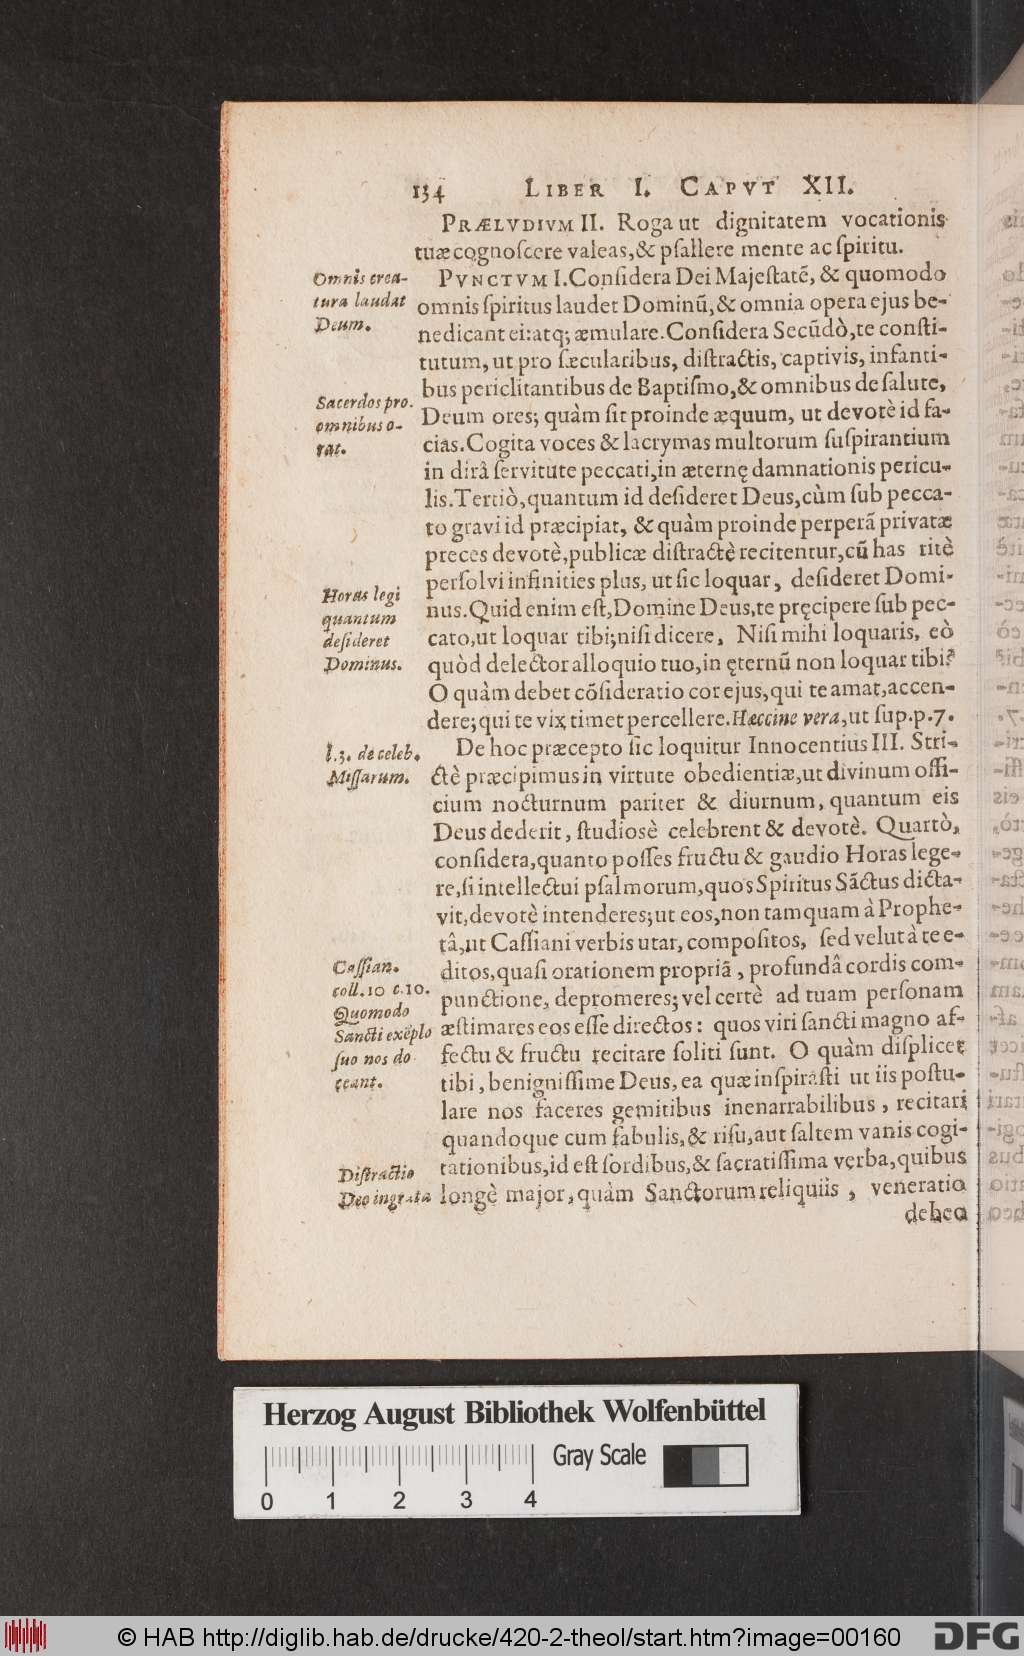 134 LIBER I. CAPVT XII.
PRÆLVDIVM II. Roga ut dignitatem vocationis
tuæ cognoſcere valeas, & pſallere mente ac ſpiritu.
Omnis crea-
tura laudat
Deum.
PVNCTVM I. Conſidera Dei Majeſtatē, & quomodo
omnis ſpiritus laudet Dominū, & omnia opera ejus be-
nedicant ei: atq; æmulare. Conſidera Secūdò, te conſti-
tutum, ut pro ſæcularibus, diſtractis, captivis, infanti-
bus periclitantibus de Baptiſmo, & omnibus de ſalute,
Sacerdos pro
omnibus o-
rat.
Deum ores; quàm ſit proinde æquum, ut devotè id fa-
cias. Cogita voces & lacrymas multorum ſuſpirantium
in dirâ ſervitute peccati, in æternę damnationis pericu-
lis. Tertiò, quantum id deſideret Deus, cùm ſub pecca-
to gravi id præcipiat, & quàm proinde perperā privatæ
preces devotè, publicæ diſtractè recitentur, cū has ritè
perſolvi infinities plus, ut ſic loquar, deſideret Domi-
Horas legi
quantum
deſideret
Dominus.
nus. Quid enim eſt, Domine Deus, te pręcipere ſub pec-
cato, ut loquar tibi; niſi dicere, Niſi mihi loquaris, eò
quòd delector alloquio tuo, in ęternū non loquar tibi?
O quàm debet cōſideratio cor ejus, qui te amat, accen-
dere; qui te vix timet percellere. Hæccine vera, ut ſup. p. 7.
l. 3. de celeb.
Miſſarum.
De hoc præcepto ſic loquitur Innocentius III. Stri-
ctè præcipimus in virtute obedientiæ, ut divinum offi-
cium nocturnum pariter & diurnum, quantum eis
Deus dederit, ſtudiosè celebrent & devotè. Quartò,
conſidera, quanto poſſes fructu & gaudio Horas lege-
re, ſi intellectui pſalmorum, quos Spiritus Sāctus dicta-
vit, devotè intenderes; ut eos, non tamquam à Prophe-
tâ, ut Caſſiani verbis utar, compoſitos, ſed velut à te e-
Caſſian.
coll. 10 c. 10.
Quomodo
Sancti exēplo
ſuo nos do
ceant.
ditos, quaſi orationem propriā, profundâ cordis com-
punctione, depromeres; vel certè ad tuam perſonam
æſtimares eos eſſe directos: quos viri ſancti magno af-
fectu & fructu recitare ſoliti ſunt. O quàm diſplicet
tibi, benigniſſime Deus, ea quæ inſpirâſti ut iis poſtu-
lare nos faceres gemitibus inenarrabilibus, recitari
quandoque cum fabulis, & riſu, aut ſaltem vanis cogi-
Diſtractio
Deo ingrata
tationibus, id eſt ſordibus, & ſacratiſſima verba, quibus
longè major, quàm Sanctorum reliquiis, veneratio
debeo
Herzog August Bibliothek Wolfenbüttel
Gray Scale
0 1 2 3 4
© HAB http://diglib.hab.de/drucke/420-2-theol/start.htm?image=00160
DFG